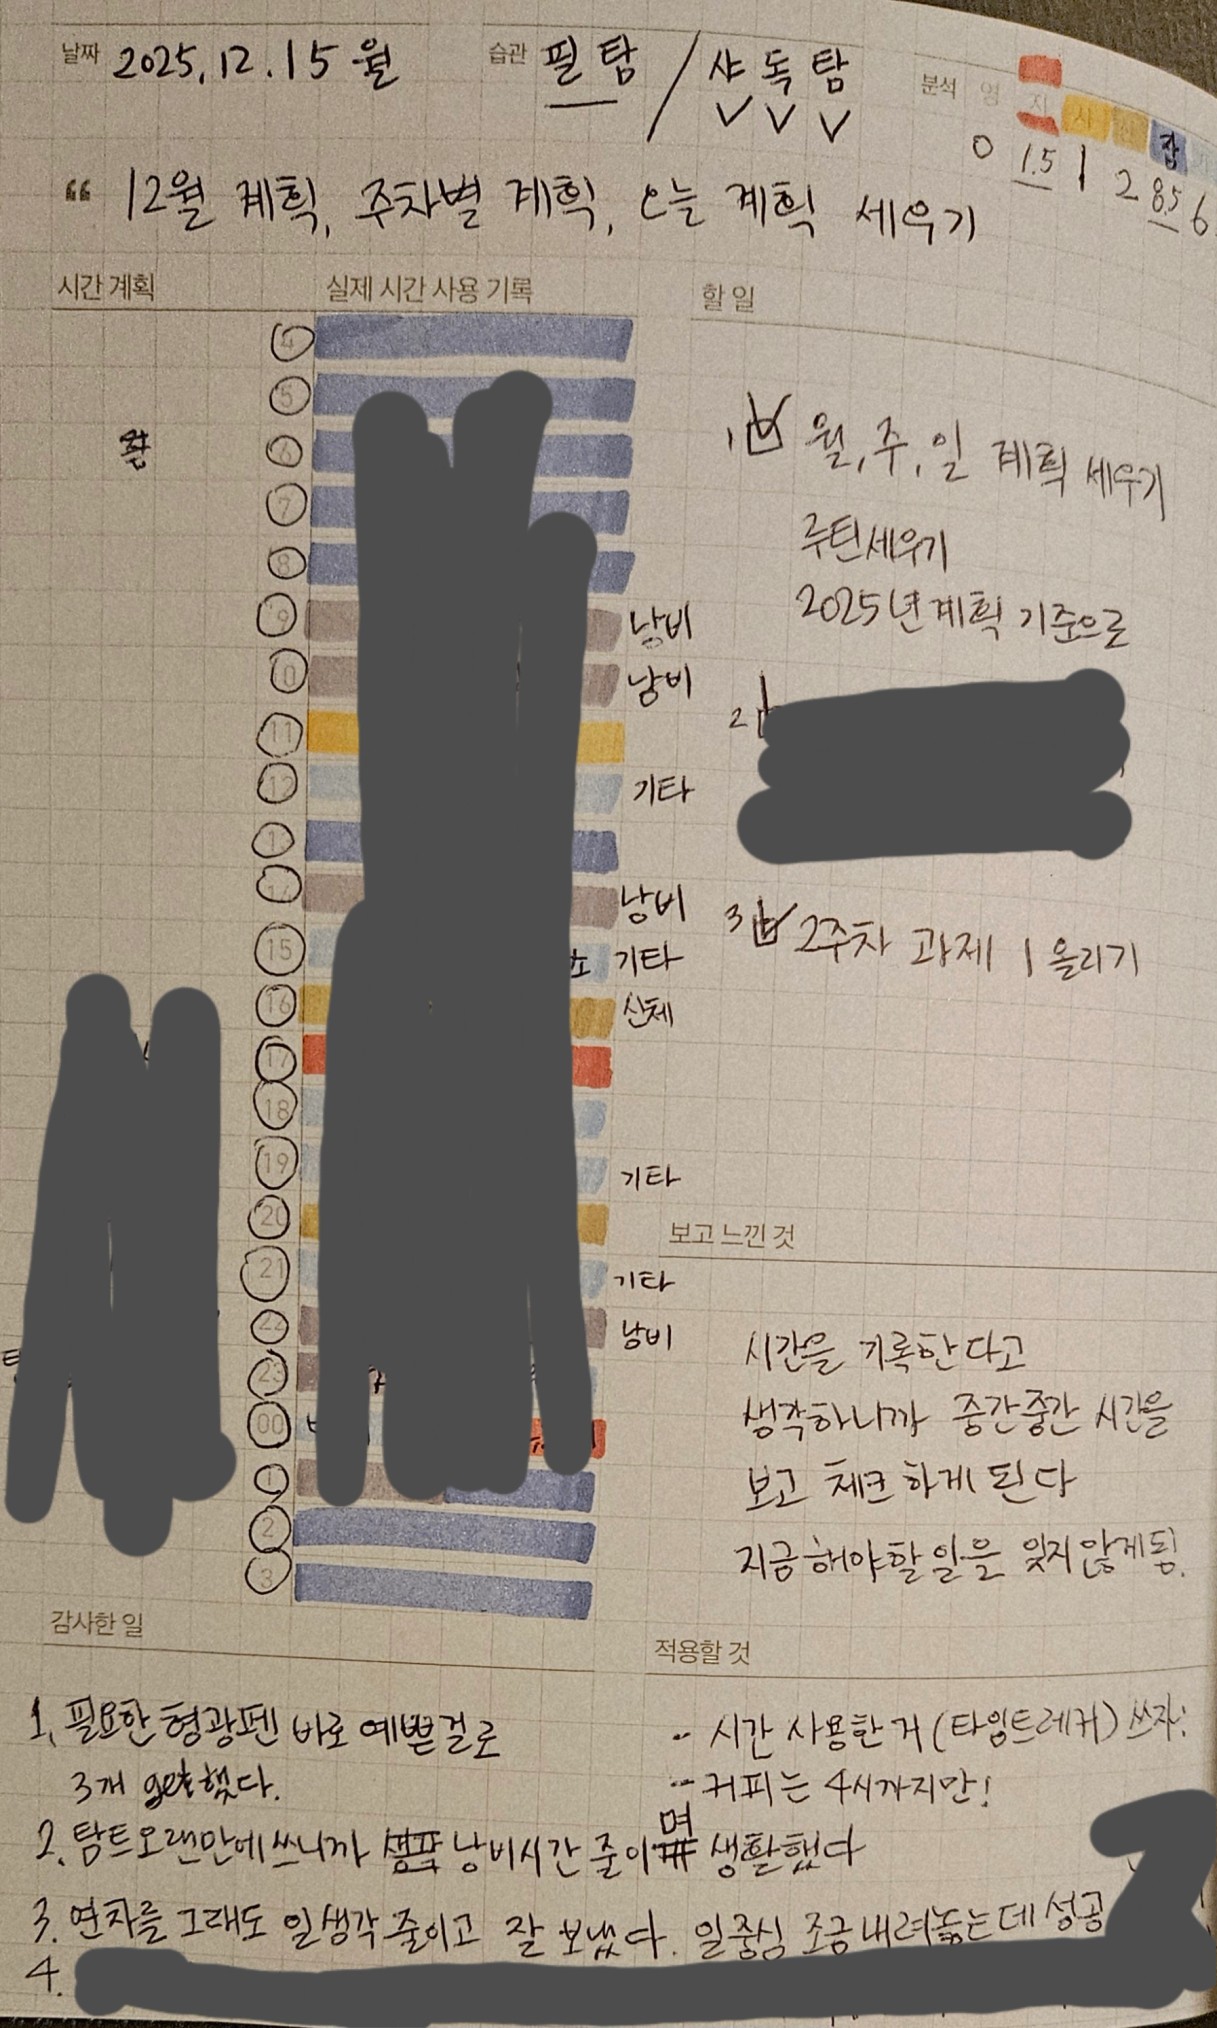 날짜 2025.12.15 월 습관 필탐 / 샤독탐 분석 영 지 사 신 잠
0 1.5 1 2 8.5 6
“ 12월 계획, 주차별 계획, 오늘 계획 세우기
시간 계획 실제 시간 사용 기록 할 일
4
5
6
7
8
9 낭비
10 낭비
11
12 기타
13
14 낭비
15 기타
16 신체
17
18
19 기타
20
21 기타
22 낭비
23
00
1
2
3
1 월, 주, 일 계획 세우기
루틴세우기
2025년 계획 기준으로
2
3 2주차 과제 1 올리기
보고 느낀 것
시간을 기록한다고
생각하니까 중간중간 시간을
보고 체크하게 된다
지금해야할일을 잊지않게됨.
감사한 일
1. 필요한 형광펜 바로 예쁜걸로
3개 get했다.
2. 탐트오랜만에쓰니까 낭비시간 줄이며 생활했다
3. 연차를 그래도 일생각줄이고 잘 보냈다. 일중심 조금내려놓는데 성공
4.
적용할 것
- 시간 사용한거 (타임트레커) 쓰자!
- 커피는 4시까지만!